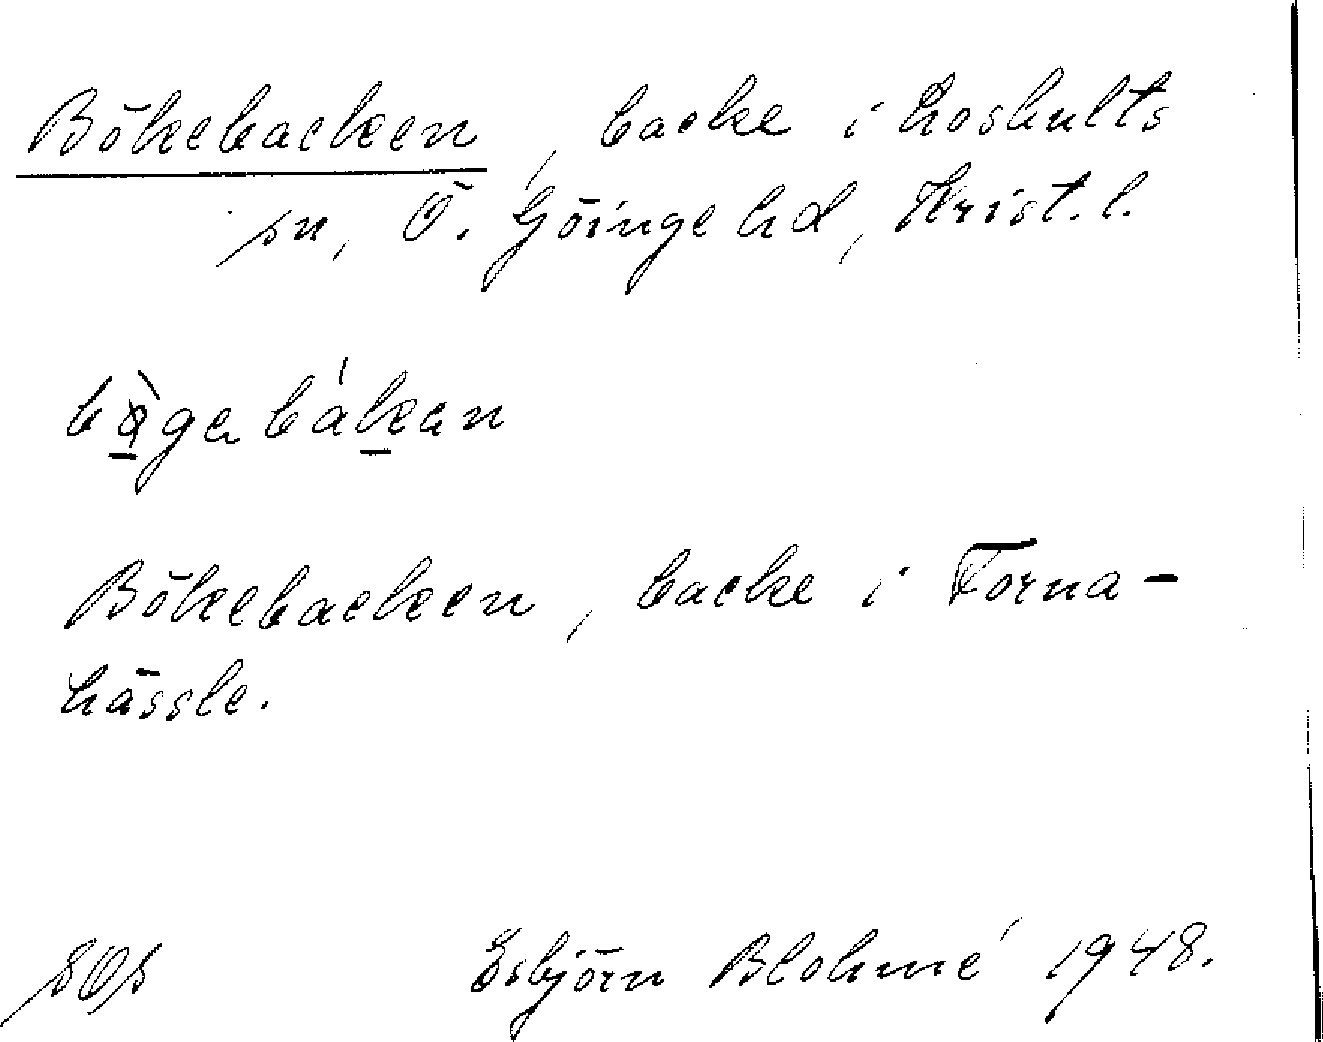 Bökebacken, backe i Loshults
sn, Ö. Göinge hd, Krist. l.
Bökebacken, backe i Torna-
hässle.
SOS Esbjörn Blohmé 1948.